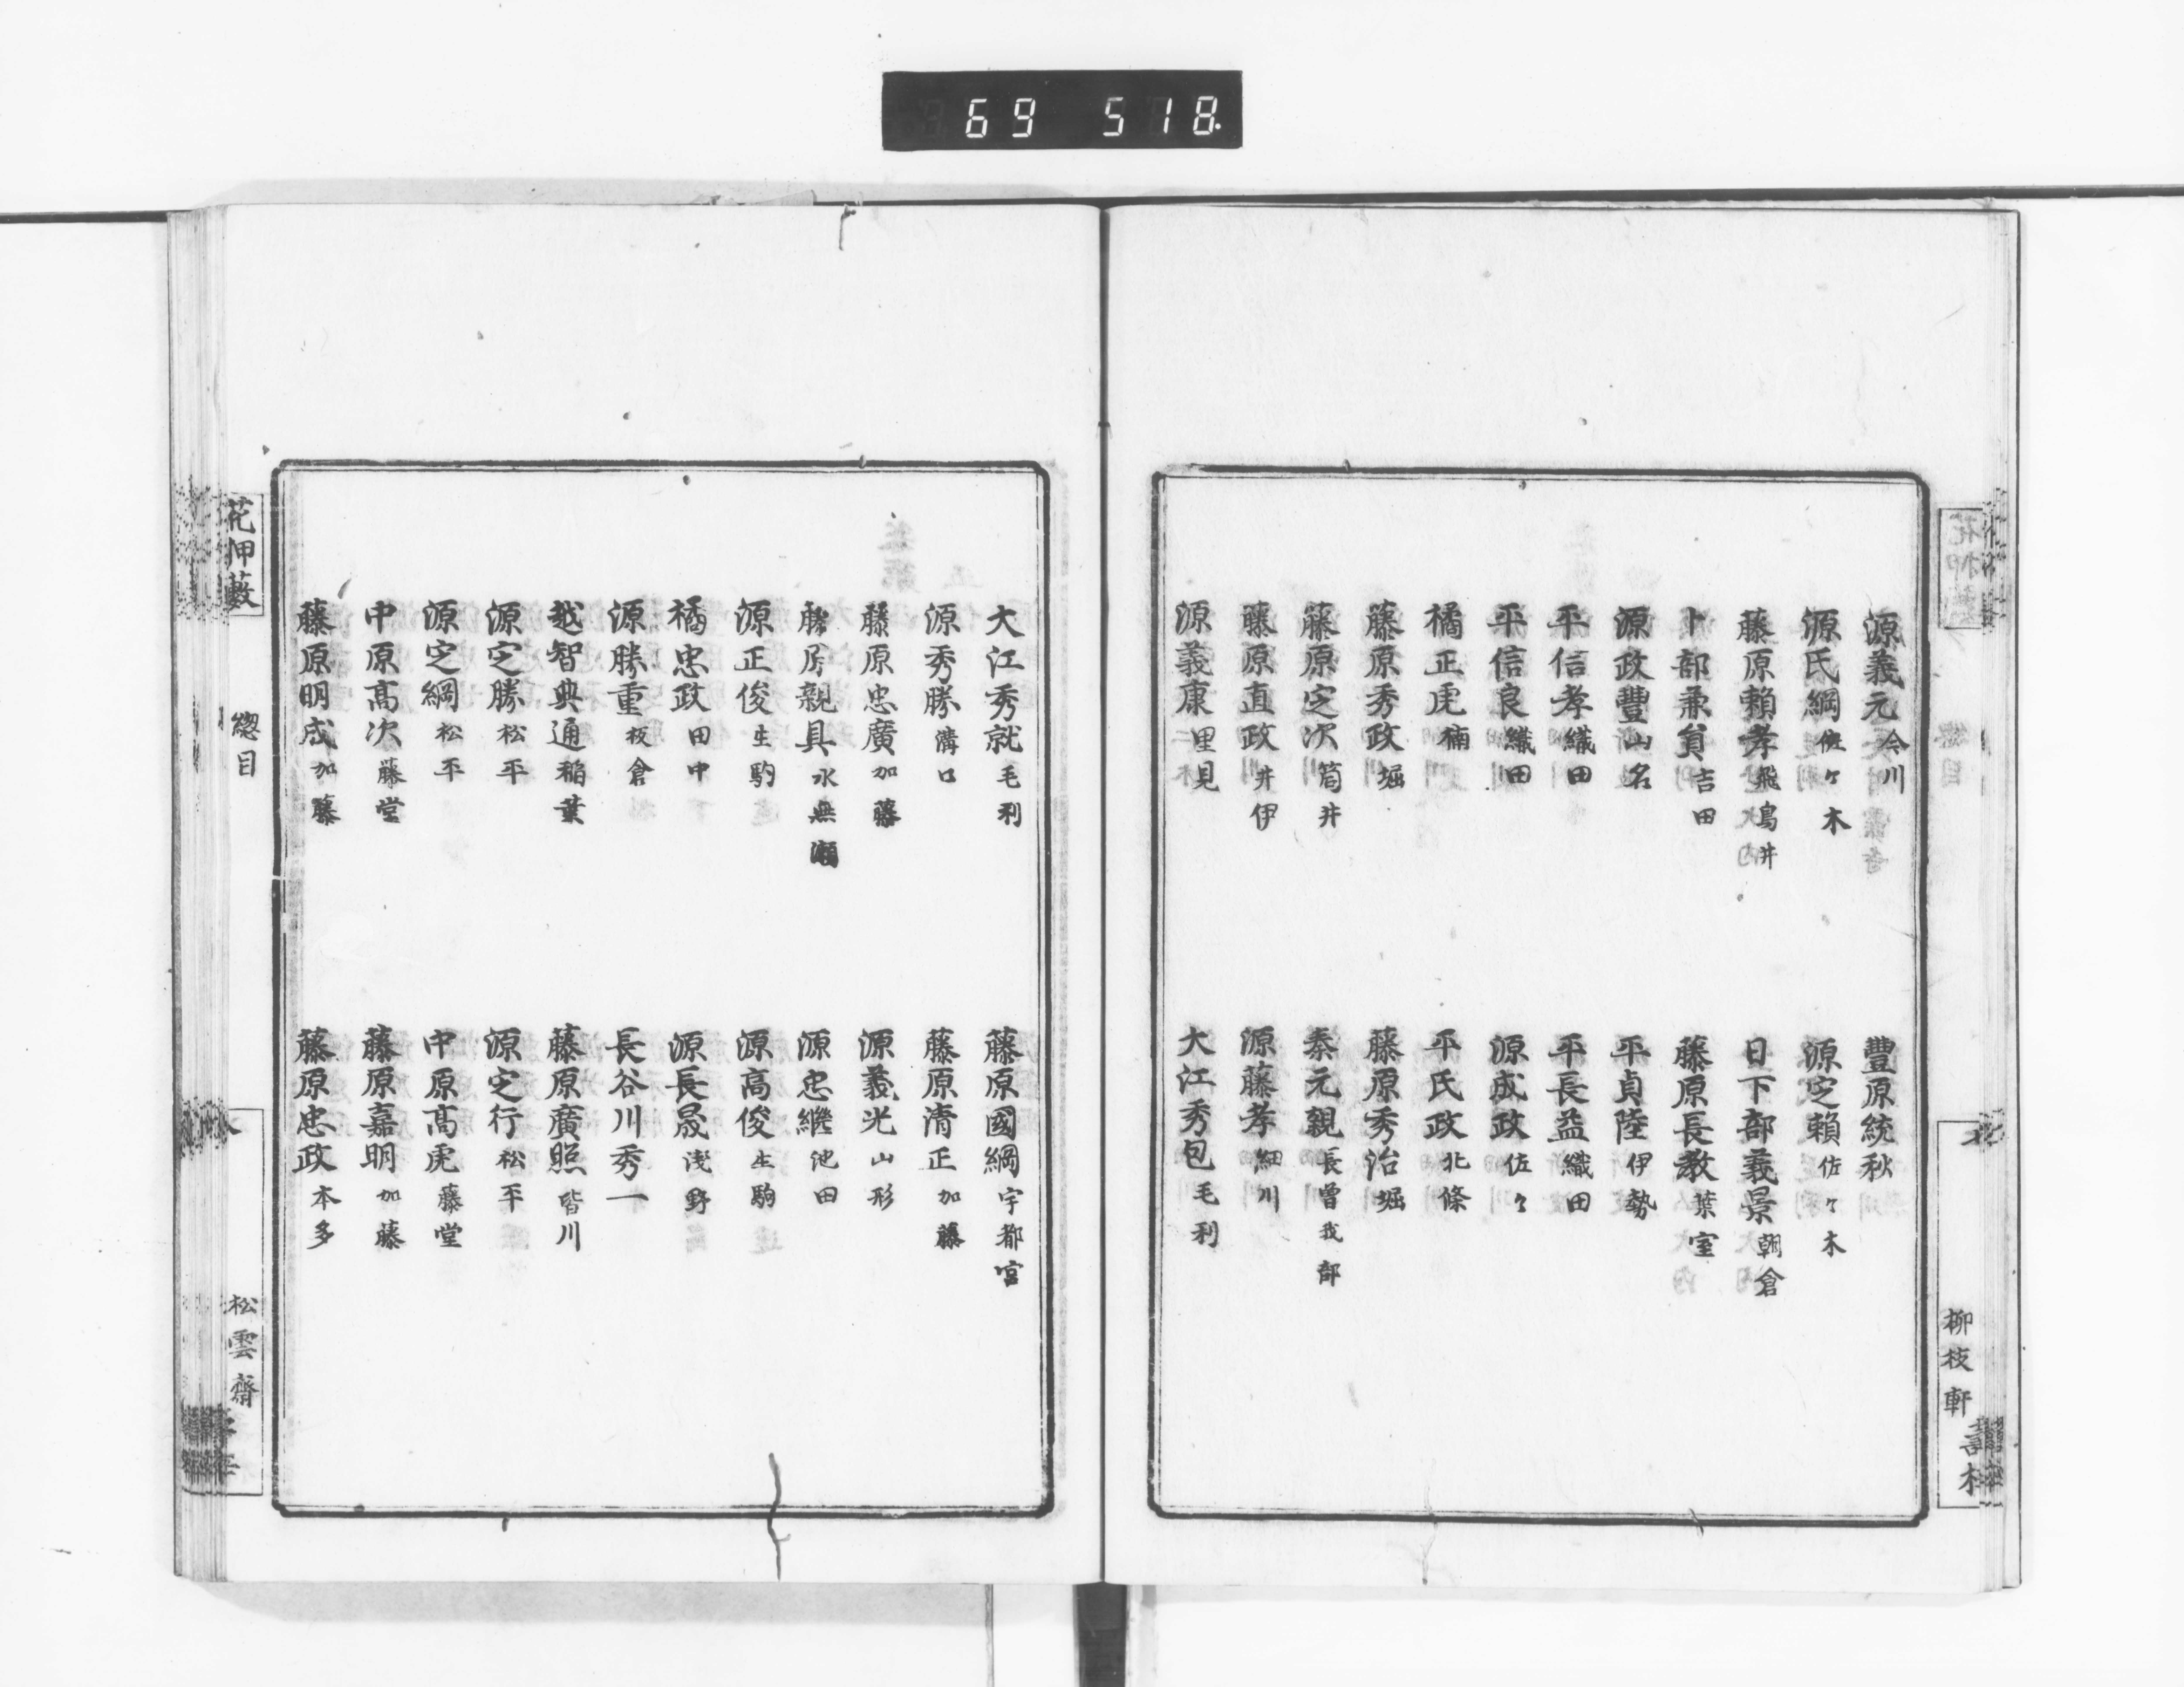 69 518.
源義元 今川
源氏綱 佐々木
藤原賴孝 飛鳥井
卜部兼貟 吉田
源政豐 山名
平信孝 織田
平信良 織田
橘正虎 楠
藤原秀政 堀
藤原定次 筒井
藤原直政 井伊
源義康 里見
豐原統秋
源定賴 佐々木
日下部義景 朝倉
藤原長教 葉室
平貞陸 伊勢
平長益 織田
源成政 佐々
平氏政 北條
藤原秀治 堀
秦元親 長曾我部
源藤孝 細川
大江秀包 毛利
柳枝軒
大江秀就 毛利
源秀勝 溝口
藤原忠廣 加藤
藤原親具 水無瀬
源正俊 生駒
橘忠政 田中
源勝重 板倉
越智典通 稲葉
源定勝 松平
源定綱 松平
中原高次 藤堂
藤原明成 加藤
藤原國綱 宇都宮
藤原清正 加藤
源義光 山形
源忠繼 池田
源高俊 生駒
源長晟 淺野
長谷川秀一
藤原廣照 皆川
源定行 松平
中原高虎 藤堂
藤原嘉明 加藤
藤原忠政 本多
花押藪
總目
松雲齋